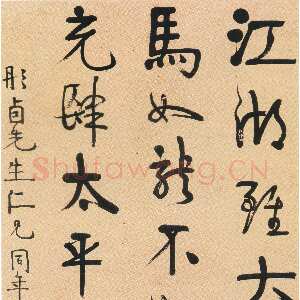 江湖雖大
馬如龍不
充肆太平
彤卣先生仁兄同年
Shufawang.CN